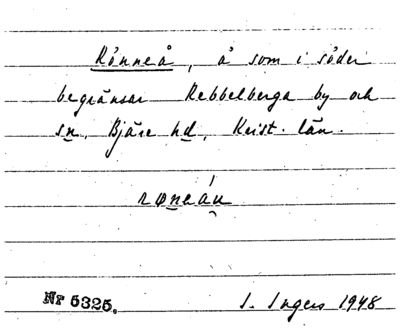 Rönneå, å som i söder
begränsar Rebbelberga by och
sn, Bjäre hd, Krist. län.
røneán
Nr 5325.
I. Ingers 1948